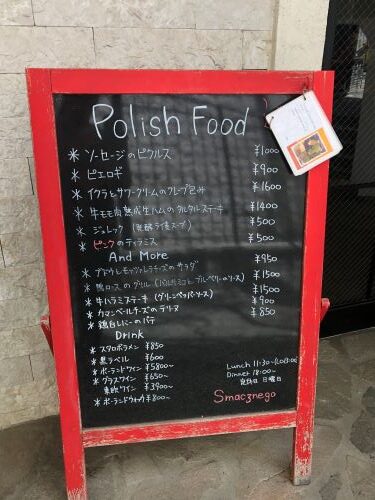 Polish Food
* ソーセージのピクルス ¥1000
* ピエロギ ¥900
* イクラとサワークリームのクレープ包み ¥1600
* 牛モモ肉熟成生ハムのタルタルステーキ ¥1400
* ジュレック (発酵ライ麦スープ) ¥500
* ピンクのティラミス ¥500
And More
* モッツァレラチーズのサラダ ¥950
* 鴨ロースのグリル (バルサミコとブルーベリーのソース) ¥1500
* 牛ハラミステーキ (グリーンペッパーソース) ¥1500
* カマンベールチーズのテリーヌ ¥900
* 鶏白レバーのパテ ¥850
Drink
* スタロプラメン ¥850
* 黒ラベル ¥600
* ポーランドワイン ¥5800~
* グラスワイン ¥650~
東欧ワイン ¥3900~
* ポーランドウォッカ ¥800~
Lunch 11:30~
Dinner 18:00~
定休日 日曜日
Smacznego